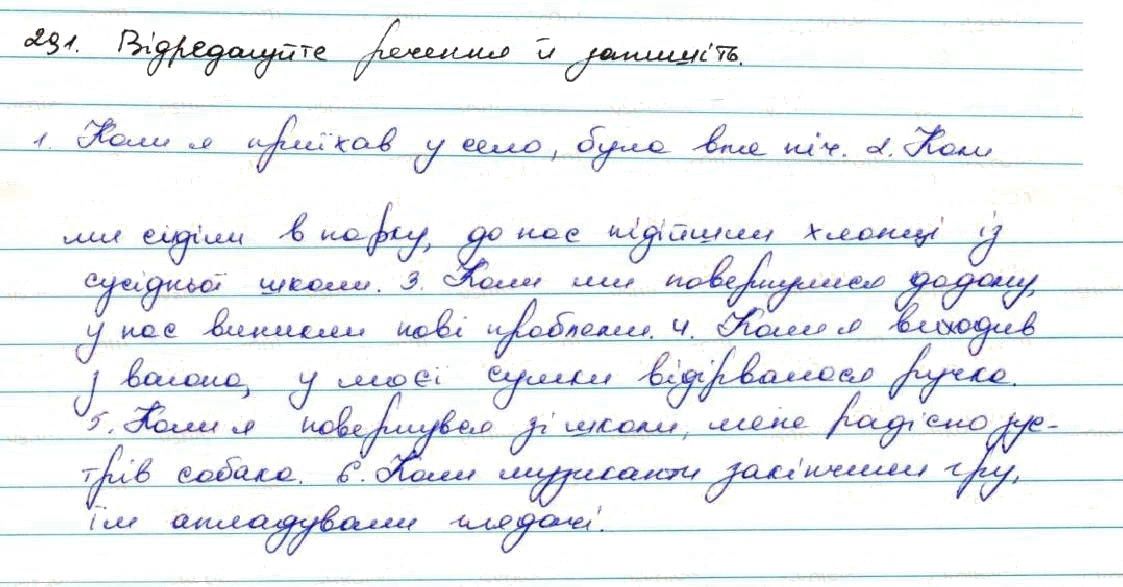 291. Відредагуйте речення й запишіть.
1. Коли я приїхав у село, була вже ніч. 2. Коли
ми сиділи в парку, до нас підійшли хлопці із
сусідньої школи. 3. Коли ми повернулися додому,
у нас виникли нові проблеми. 4. Коли я виходив
з вагона, у моєї сумки відірвалася ручка.
5. Коли я повернувся зі школи, мене радісно зус-
трів собака. 6. Коли музиканти закінчили гру,
їм аплодували глядачі.